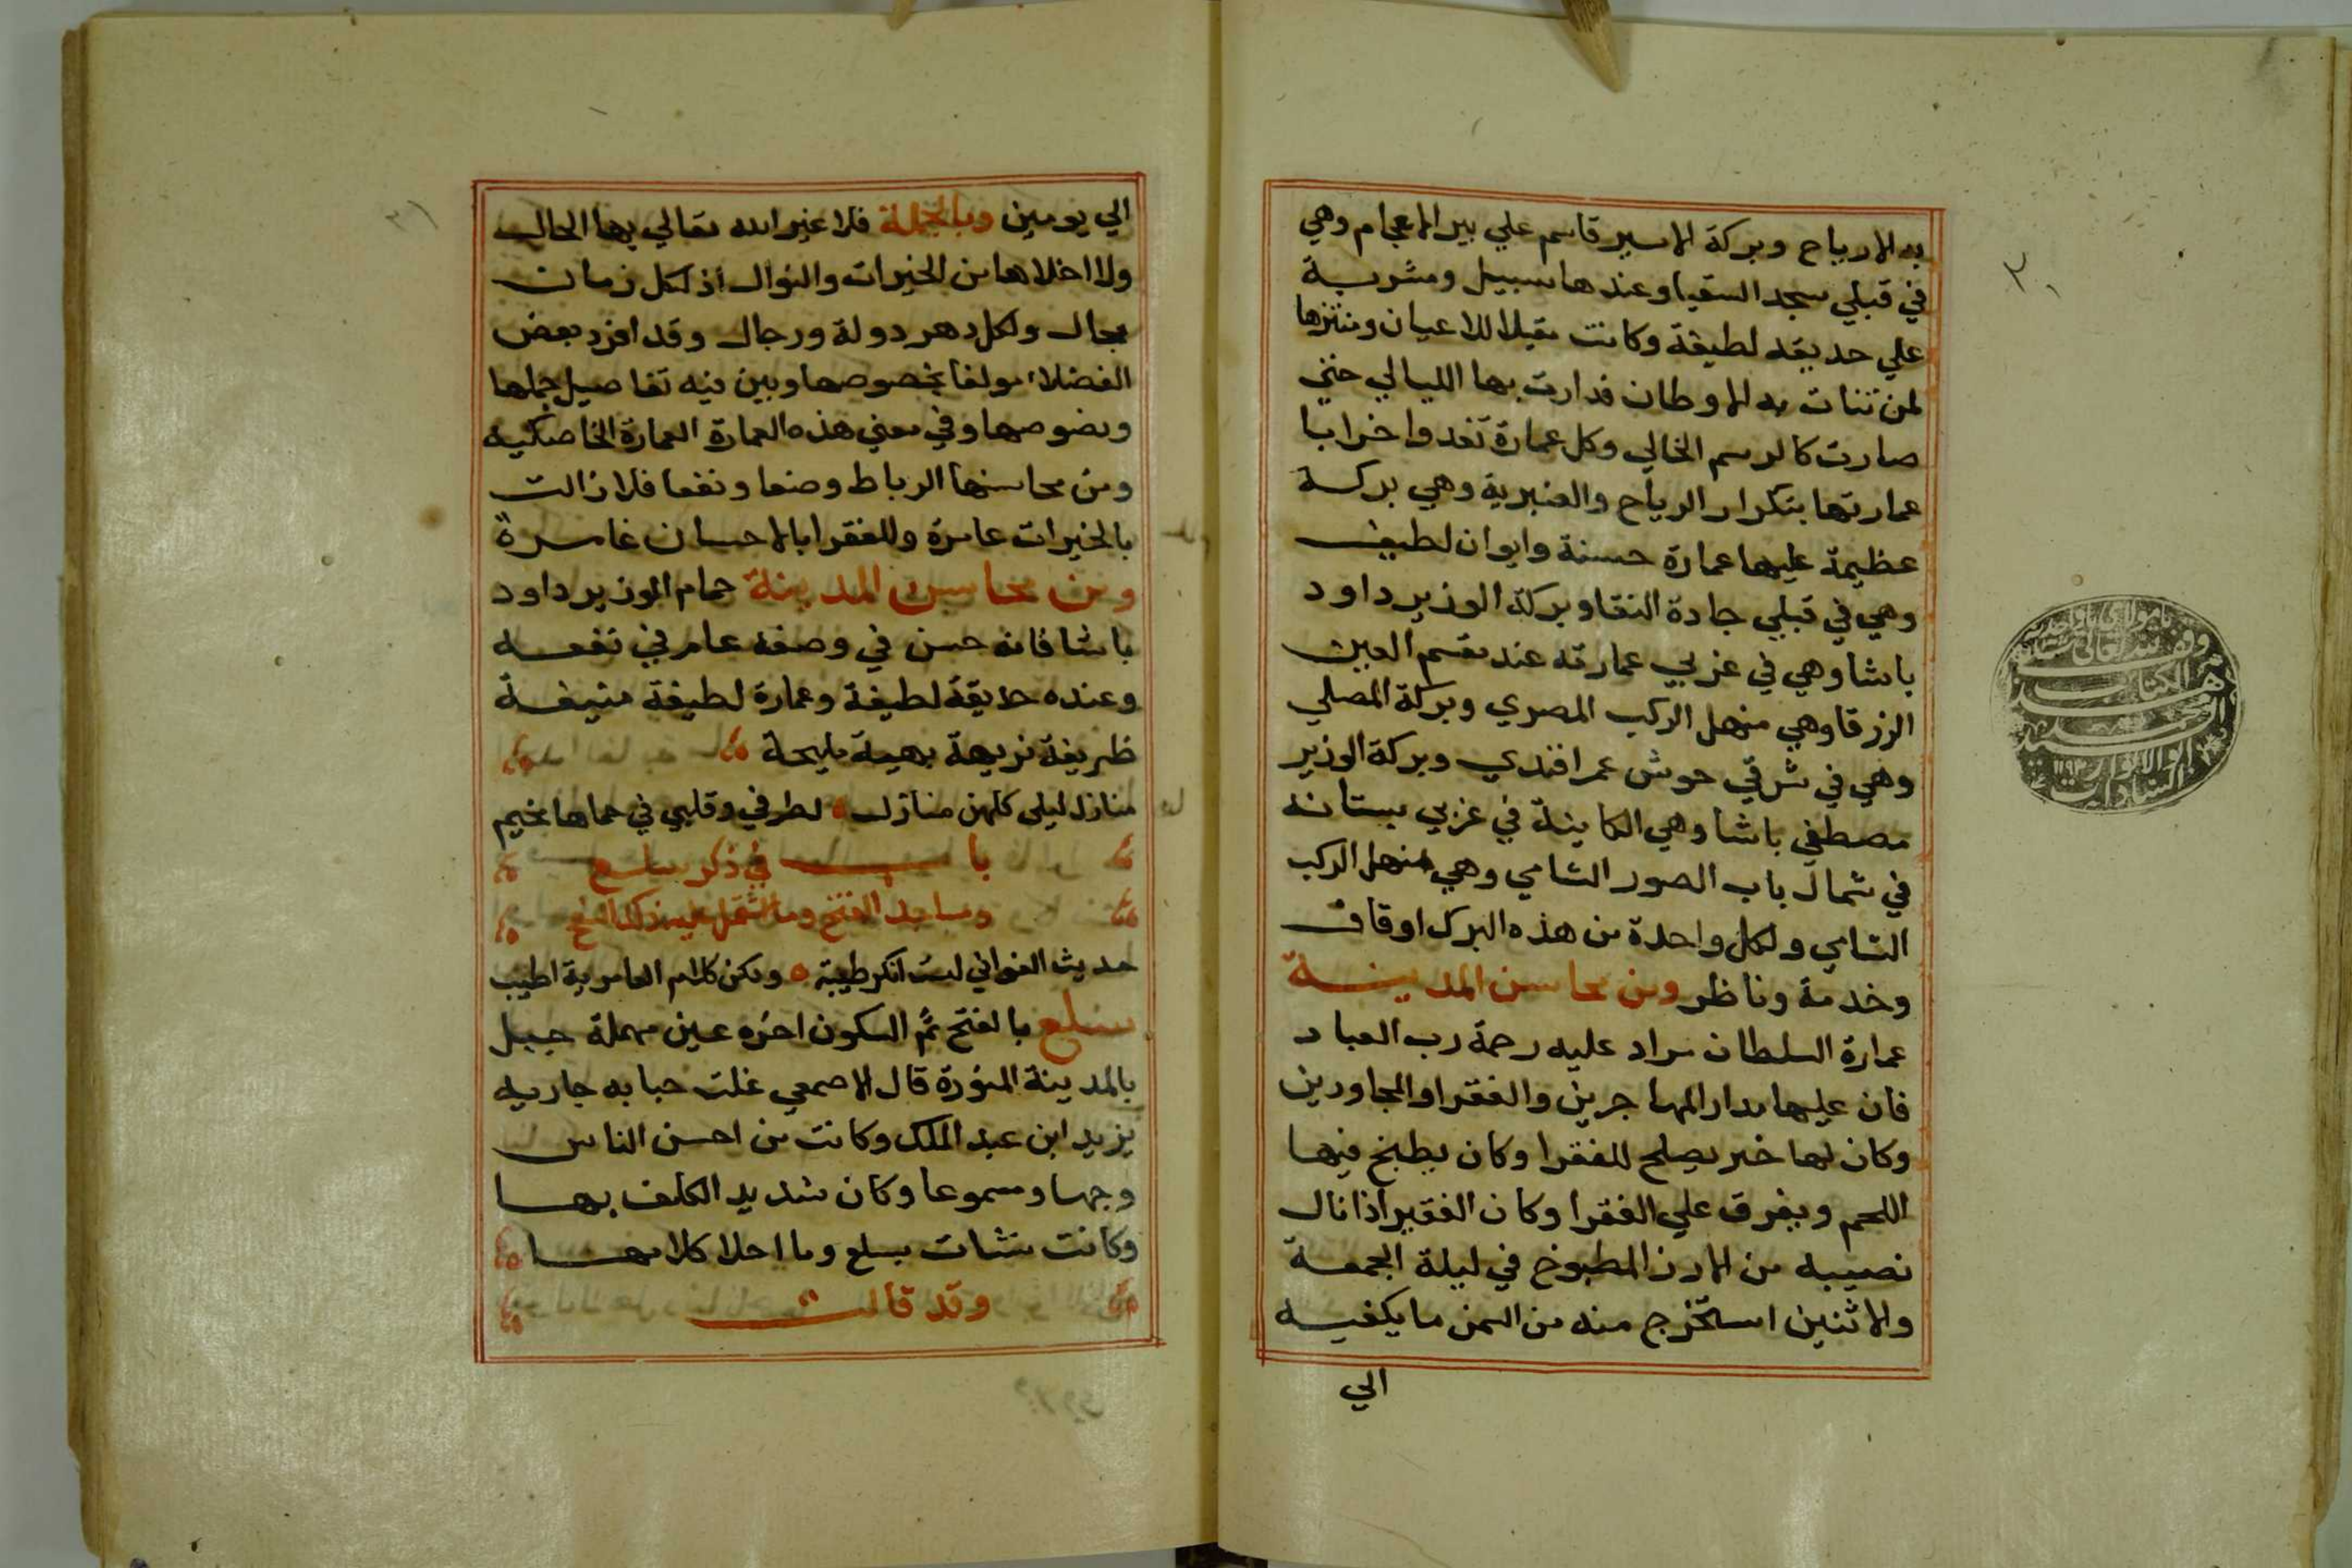 به الارياح وبركة الامير قاسم علي بير الاعجام وهي
في قبلي مسجد السقيا وعندها سبيل ومشربة
علي حديقة لطيفة وكانت مقيلا للاعيان ومنتزها
لمن تنات به الاوطان فدارت بها الليالي حتي
صارت كالرسم الخالي وكل عمارة تغدوا خرابا
عمارتها بتكرار الرياح والعنبرية وهي بركة
عظيمة عليها عمارة حسنة وايوان لطيف
وهي في قبلي جادة النقا وبركة الوزير داود
باشا وهي في غربي عمارته عند مقسم العين
الزرقا وهي منهل الركب المصري وبركة المصلي
وهي في شرقي حوش عمر افندي وبركة الوزير
مصطفي باشا وهي الكاينة في غربي بستانه
في شمال باب الصور الشامي وهي منهل الركب
الشامي ولكل واحدة من هذه البرك اوقاف
وخدمة وناظر ومن محاسن المدينة
عمارة السلطان مراد عليه رحمة رب العباد
فان عليها مدار المهاجرين والفقرا والمجاورين
وكان لها خبز يصلح للفقرا وكان يطبخ فيها
اللحم ويفرق علي الفقرا وكان الفقير اذا نال
نصيبه من الارز المطبوخ في ليلة الجمعة
والاثنين استخرج منه من السمن ما يكفيه
الي
٣٠
الي يومين وبالجملة فلا غير الله تعالي بها الحال
ولا اخلاها من الخيرات والنوال اذ لكل زمان
مجال ولكل دهر دولة ورجال وقد افرد بعض
الفضلاء مولفا بخصوصها وبين فيه تفاصيل جملها
ونصوصها وفي معني هذه العمارة العمارة الخاصكيه
ومن محاسنها الرباط وضعا ونفعا فلا زالت
بالخيرات عامرة وللفقرا بالاحسان غامرة
ومن محاسن المدينة حمام الوزير داود
باشا فانه حسن في وصفه عام في نفعه
وعنده حديقة لطيفة وعمارة لطيفة منيفة
ظريفة نزيهة بهية مليحة
منازل ليلى كلهن منازل لطرفي وقلبي في حماها مخيم
باب في ذكر سلع
ومساجد الفتح وما اشتمل عليه ذكر السفح
حديث الغواني لست انكر طيبه ولكن كلام العامرية اطيب
سلع بالفتح ثم السكون اخره عين مهملة جبل
بالمدينة المنورة قال الاصمعي غلت حبابه جاريه
يزيد ابن عبد الملك وكانت من احسن الناس
وجها ومسموعا وكان شديد الكلف بها
وكانت نشات بسلع وما احلا كلامها
وقد قالت
٣١